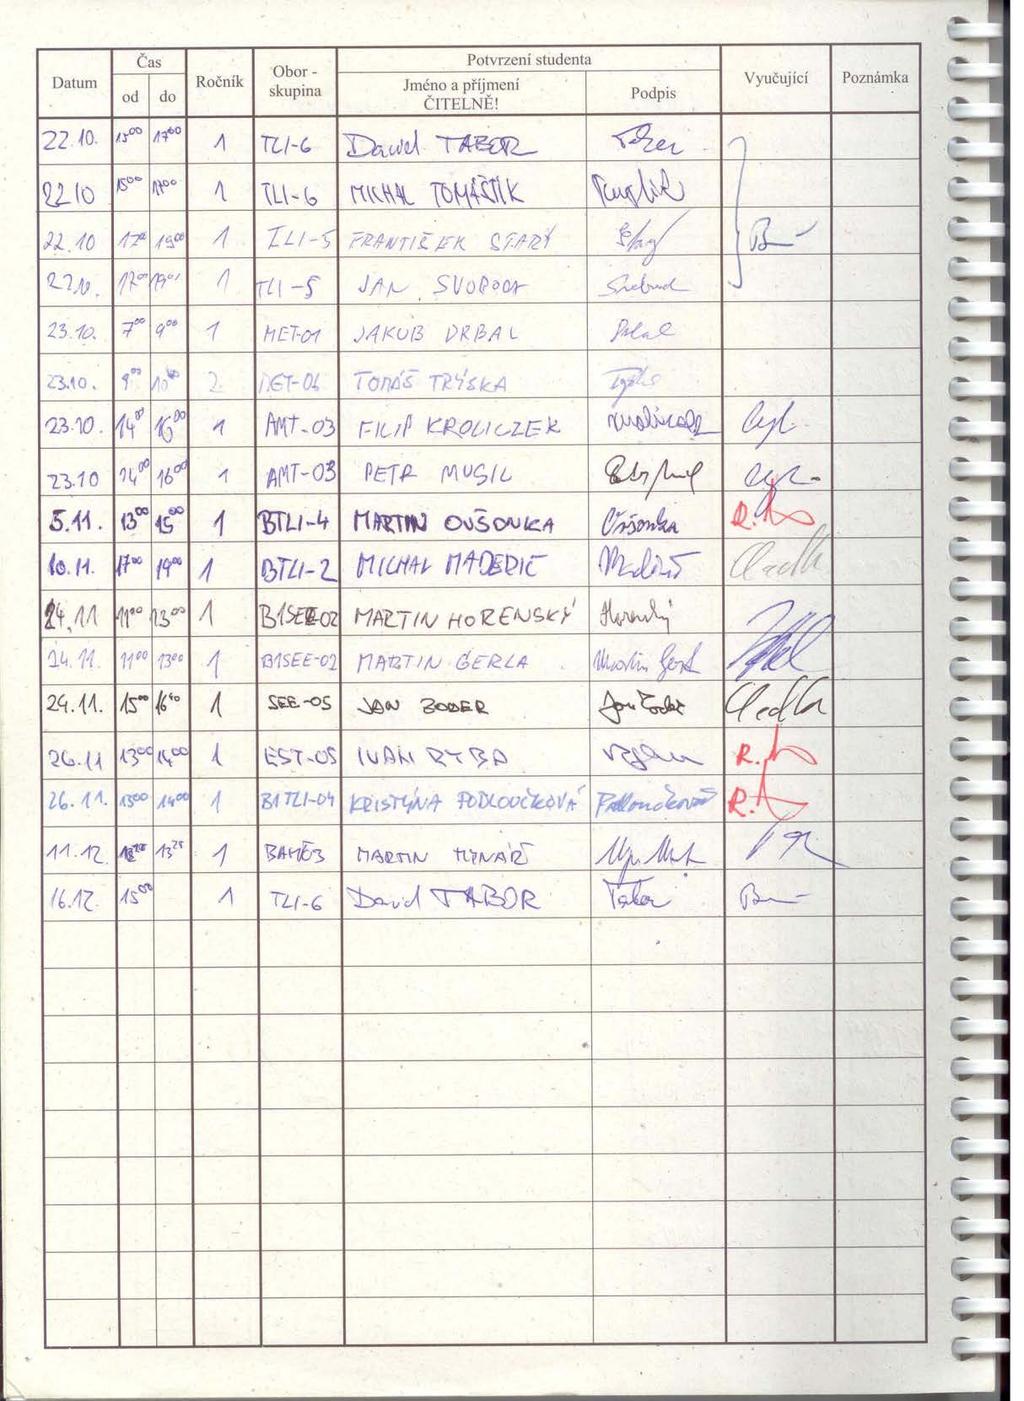 Datum Čas Ročník Obor - skupina Potvrzení studenta Vyučující Poznámka
od do Jméno a příjmení ČITELNĚ! Podpis
22.10. 1500 1700 1 TLI-6 David TABOR Tabor
22.10 1500 1700 1 TLI-6 MICHAL TOMÁŠTÍK
22.10 1700 1900 1 TLI-5 FRANTIŠEK STARÝ Starý
22.10. 1700 1900 1 TLI-5 JAN SVOBODA Svoboda
23.10. 700 900 1 MET-01 JAKUB DRBAL
23.10. 900 2 MET-04 TOMÁŠ TRÝSKA
23.10. 1400 1600 1 AMT-03 FILIP KROLICZEK
23.10 1400 1600 1 AMT-03 PETR MUSIL
5.11. 1300 1500 1 BTLI-4 MARTIN OVŠONKA Ovšonka
10.11. 1700 1900 1 BTLI-2 MICHAL MADERIČ
24.11 1100 1300 1 B1SEE-02 MARTIN HORENSKÝ Horenský
24.11. 1100 1300 1 B1SEE-02 MARTIN GERLA Martin
24.11. 1500 1640 1 SEE-05 JAN Jan
26.11 1300 1400 1 EST-05 IVAN RYBA
26.11. 1300 1400 1 B1TLI-04 KRISTÝNA PODLOUČKOVÁ Podloučková
11.12. 1325 1 MARTIN MYNÁŘ
16.12. 1500 1 TLI-6 David TABOR Tabor